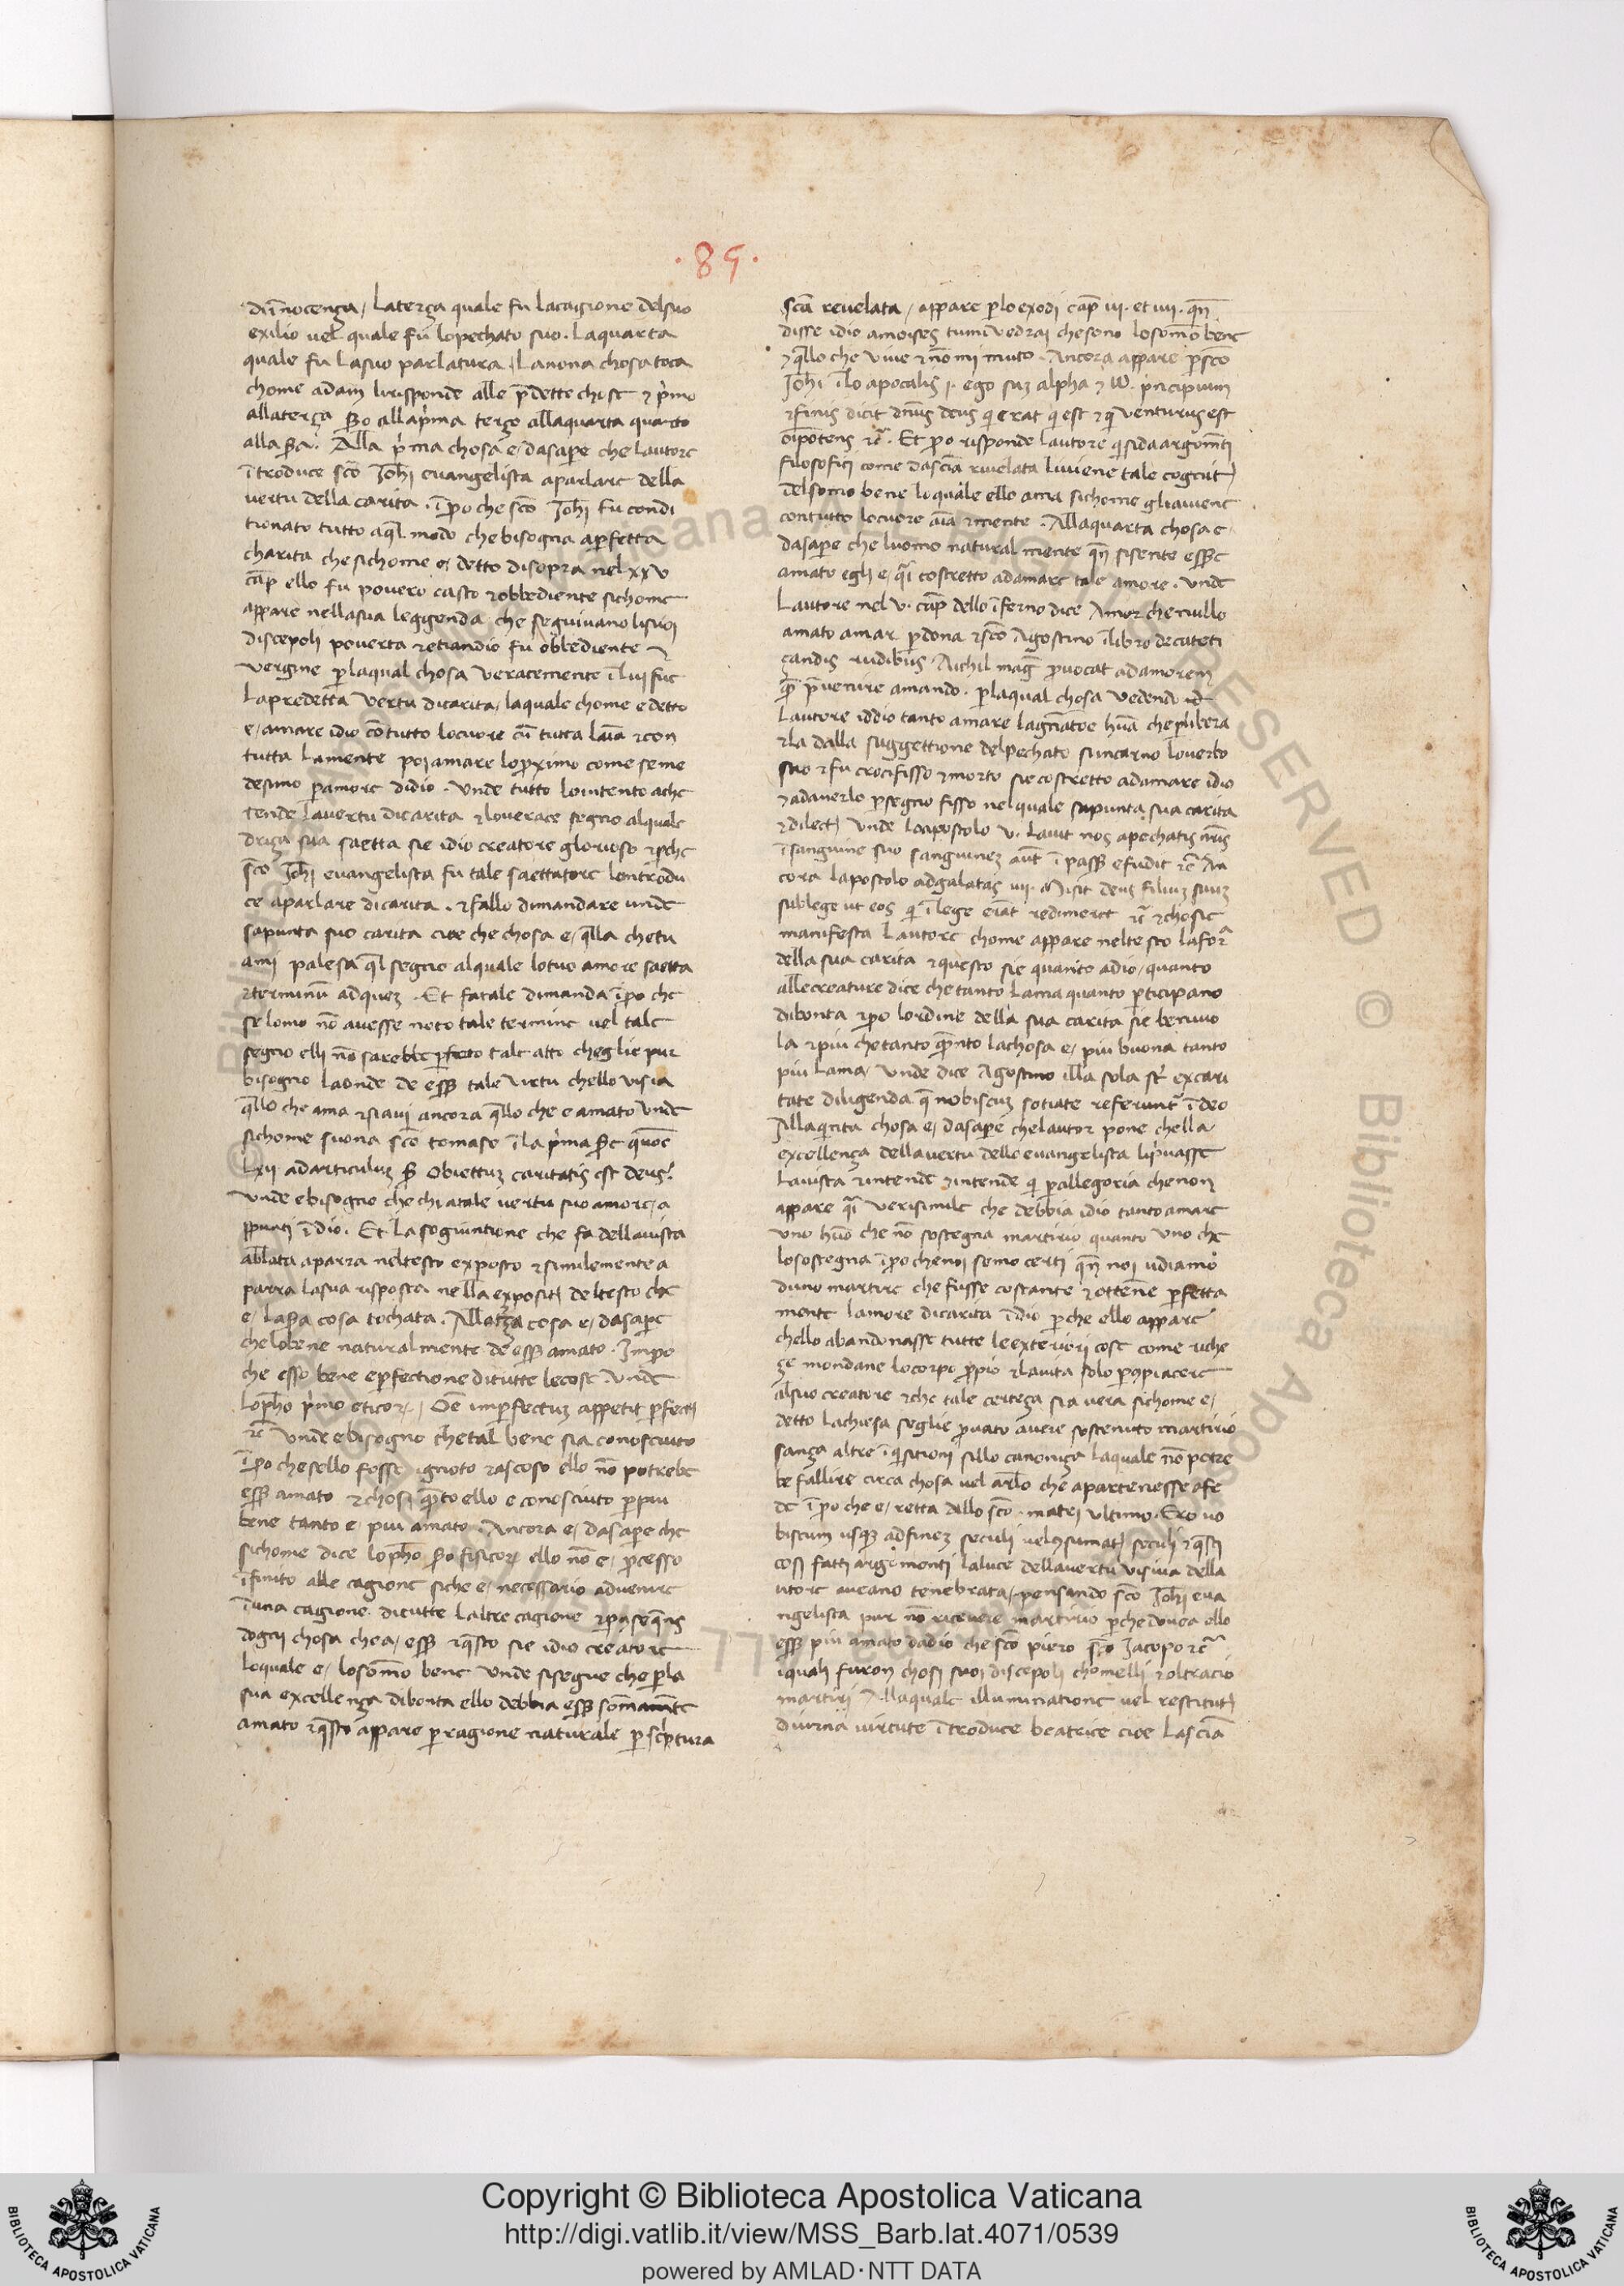 ·85·
dīnocenza, laterza quale fu lacagione delsuo
exilio vel quale fu lopechato suo. laquarta
quale fu lasuo parlatura. lanona chosa toca
chome adam lirisponde alle p̄dette chose ⁊ p̍mo
allaterza ßo alla p̍ma terzo allaquarta quarto
alla ßa. Alla p̍ma chosa e, dasaꝑe che lautore
ītroduce sc̄o Joh̄i evangelista aparlare della
vertu della carita. īꝑo che sc̄o Joh̄i fu condi
tionato tutto aq̄l modo che bisogna aꝑfetta
charita che sichome e, detto disopra nel xxv
cap̄ ello fu povero casto ⁊ obbediente sichome
appare nellasua leggenda che seguivano lisuoi
discepoli poverta ⁊ etiandio fu obbediente ⁊
vergine ꝑlaqual chosa veracemente ī lui fue
lapredetta vertu dicarita, laquale chome e detto
e, amare idio cō tutto locuore cū tutta laīa ⁊ con
tutta lamente poi amare loꝓximo come seme
desimo ꝑamore didio. Unde tutto lointento ache
tende lavertu dicarita ⁊ loverace segno alquale
driza sua saetta sie idio creatore glorioso ⁊ ꝑche
sc̄o Joh̄i evangelista fu tale saettatore lontrodu
ce aparlare dicarita. ⁊ fallo dimandare unde
sapunta suo carita cioe che chosa e, q̄lla chetu
ami palesa q̄l segno alquale lotuo amore saetta
⁊ terminū adquez. Et fatale dimanda īꝑo che
se lomo nō avesse noto tale termine vel tale
segno elli nō sarebbe ꝑfecto tale atto cheglie pur
bisogno laonde de eſſ̄ tale virtu chello visia
q̄llo che ama ⁊ siavi ancora q̄llo che e amato unde
sichome suona sc̄o tomaso ī la p̍ma ße quoc̄
lxii adarticuluz ß Obiettuz caritatis est deus.
Unde ebisogno che chi atale vertu suo amore, a
ppunti īdio. Et la sogiuntione che fa dellavista
abbata aparra neltesto exposto ⁊ similemente a
parra lasua risposta nella exposit̄ deltesto che
e, laßa cosa tochata. Allaterza cosa e, dasaꝑe
chelobene naturalmente de eſſ̄ amato. Imꝑo
che esso bene eꝑfectione ditutte lecose. Unde
loph̄o p̍mo eticoꝝ, Oē imꝑfectuz appetit ꝑfect̄
⁊c̄ Unde ebisogno chetal bene sia conosciuto
īꝑo chesello fosse ignoto ⁊ ascoso ello nō potrebe
eſſ̄ amato ⁊ chosi q̄nto ello e conosciuto ꝑpiu
bene tanto e, piu amato. Ancora e, dasaꝑe che
sichome dice loph̄o ßo fisicoꝝ ello nō e, ꝓcesso
īfinito alle cagione siche e, necessario advenire
ī una cagione ditutte laltre cagione ⁊ ꝑꝯseq̄ns
dogni chosa chea, eſſ̄ ⁊ q̄sto sie idio creatore
loquale e, losom̄o bene Unde sisegue che ꝑla
sua excellenza dibonta ello debbia eſſ̄ som̄amēte
amato ⁊ q̄sto appare ꝑ ragione naturale ꝑ sc̍ptura
sc̄a revelata, appare ꝑlo exodi cap̄ iii. et iiii. qn̄
disse idio amoises tumivedrai chesono losom̄o bene
⁊ q̄llo che vive ⁊ nō mi muto. Ancora appare ꝑ sc̄o
Joh̄i īlo apocalis i. ego suz alpha ⁊ ω. p̍ncipium
⁊ finis dicit dn̄us deus qi erat qi est ⁊ qi venturus est
oīpotens ⁊c̄. Et ꝑo risponde lautore qi sida argom̄ti
filosofici come dascīa rivelata liviene tale cognit̄
delsomo bene loquale ello ama sichome gliaviene
contutto locuore aīa ⁊ mente. Allaquarta chosa e,
dasaꝑe che luomo naturalmente qn̄ sisente eſſ̄e
amato egli e, q̄i costretto adamare tale amore. Unde
Lautore nel v. cap̄ dello īferno dice Amor che nullo
amato amar ꝑdona ⁊ sc̄o Agostino ī libro de cateti
çandis rudibus Nichil mag̅ ꝓvocat adamorem
q̄ p̄venire amando. ꝑlaqual chosa vedendo
Lautore iddio tanto amare lagn̄atōe hūa che ꝑlibera
⁊ la dalla suggettione delpechato sincarno loverbo
suo ⁊ fu crocifisso ⁊ morto sie costretto adamare idio
⁊ adaverlo ꝑsegno fisso nelquale sapunta sua carita
⁊ dilect̄ Unde loapostolo v. lavit nos apechatis nr̄is
īsanguine suo sanguinez aut̄ ī paſſ̄ efudit ⁊c̄ An
cora lapostolo adgalatas iiii. Misit deus filiuz suuz
sublege ut eos qi ī lege erāt redimeret ⁊c̄ ⁊ chosie
manifesta lautore chome appare neltesto lafor̄
della sua carita ⁊ questo sie quanto adio, quanto
allecreature dice chetanto lama quanto ꝑticipano
dibonta ⁊ ꝑo lordine della sua carita sie benivo
la ⁊ piu chetanto q̄nto lachosa e, piu buona tanto
piu lama, Unde dice Agostino illa sola st̄ excari
tate diligenda q̄ nobiscuz sotiate referunt̄ ī deo
Allaq̍nta chosa e, dasaꝑe chelautor pone chella
excellenza dellavertu dello evangelista lip̍vasse
lavista ⁊ intende ⁊ intende qi ꝑallegoria chenon
appare q̄i verisimile che debbia idio tanto amare
uno huō che nō sostegna martirio quanto uno che
losostegna īꝑo chenoi semo certi qn̄ noi udiamo
duno martire che fusse costante ⁊ ottenne ꝑfetta
mente lamore dicarita īdio ꝑche ello appare
chello abandonasse tutte leexteriori cose come riche
ze mondane locorpo ꝓpio ⁊ lavita solo ꝑ ꝯpiacere
alsuo creatore ⁊ che tale certeza sia vera sichome e,
detto lachiesa seglie ꝓvato avere sostenuto martirio
sanza altre īq̍sitioni sillo canoniza laquale nō potre
be fallire circa chosa vel art̄lo che apartenesse afe
de īꝑo che e, retta dallo sc̄o. matei ultimo. Ero vo
biscum usq; adfinez seculi vel ꝯsumat̄ seculi ⁊ q̄sti
cosi fatti argomenti laluce dellavertu visiva della
utore aveano tenebrata, pensando sc̄o Joh̄i eva
ngelista pur nō ricevere martirio ꝑche dovea ello
eſſ̄ piu amato dadio che sc̄o piero sc̄o Jacopo ⁊c̄
iquali furon chosi suoi discepoli chomelli ⁊ oltracio
martiri Allaquale illuminatione vel restitut̄
diurna virtute ītroduce beatrice cioe lascīa
Copyright © Biblioteca Apostolica Vaticana
http://digi.vatlib.it/view/MSS_Barb.lat.4071/0539
powered by AMLAD·NTT DATA
BIBLIOTECA APOSTOLICA VATICANA
BIBLIOTECA APOSTOLICA VATICANA